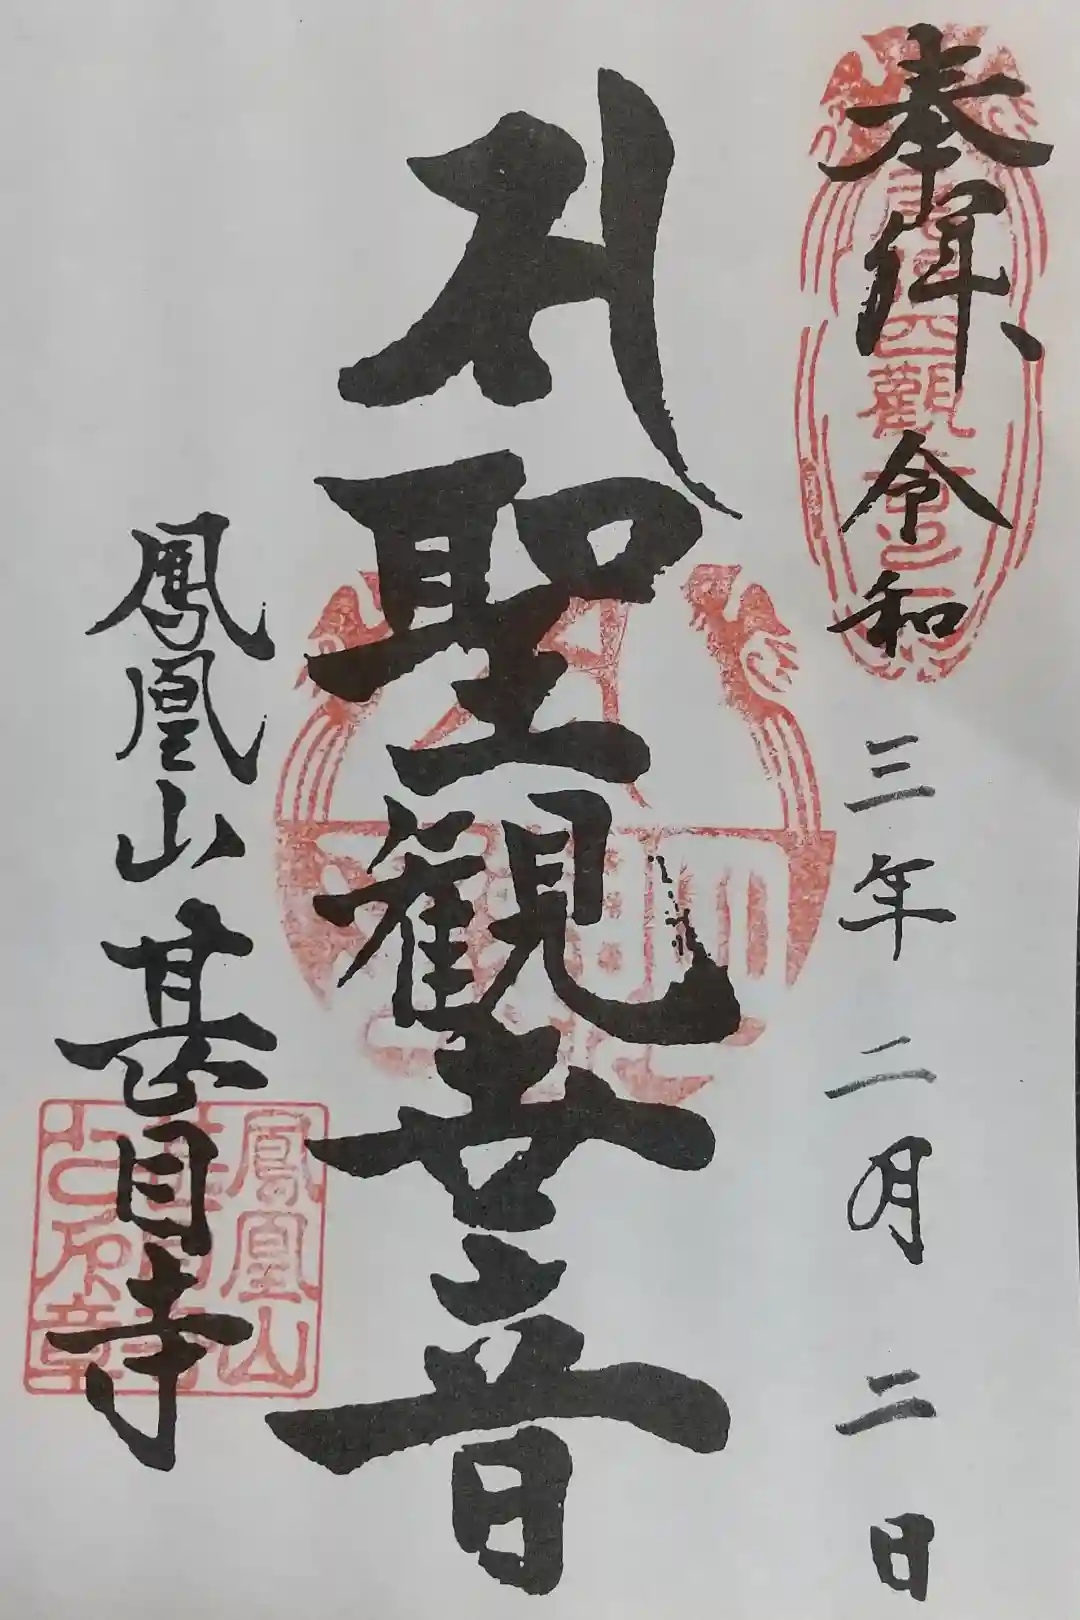 奉拝 令和三年二月二日
聖観世音
鳳凰山 甚目寺
鳳凰山
甚目寺
之印章